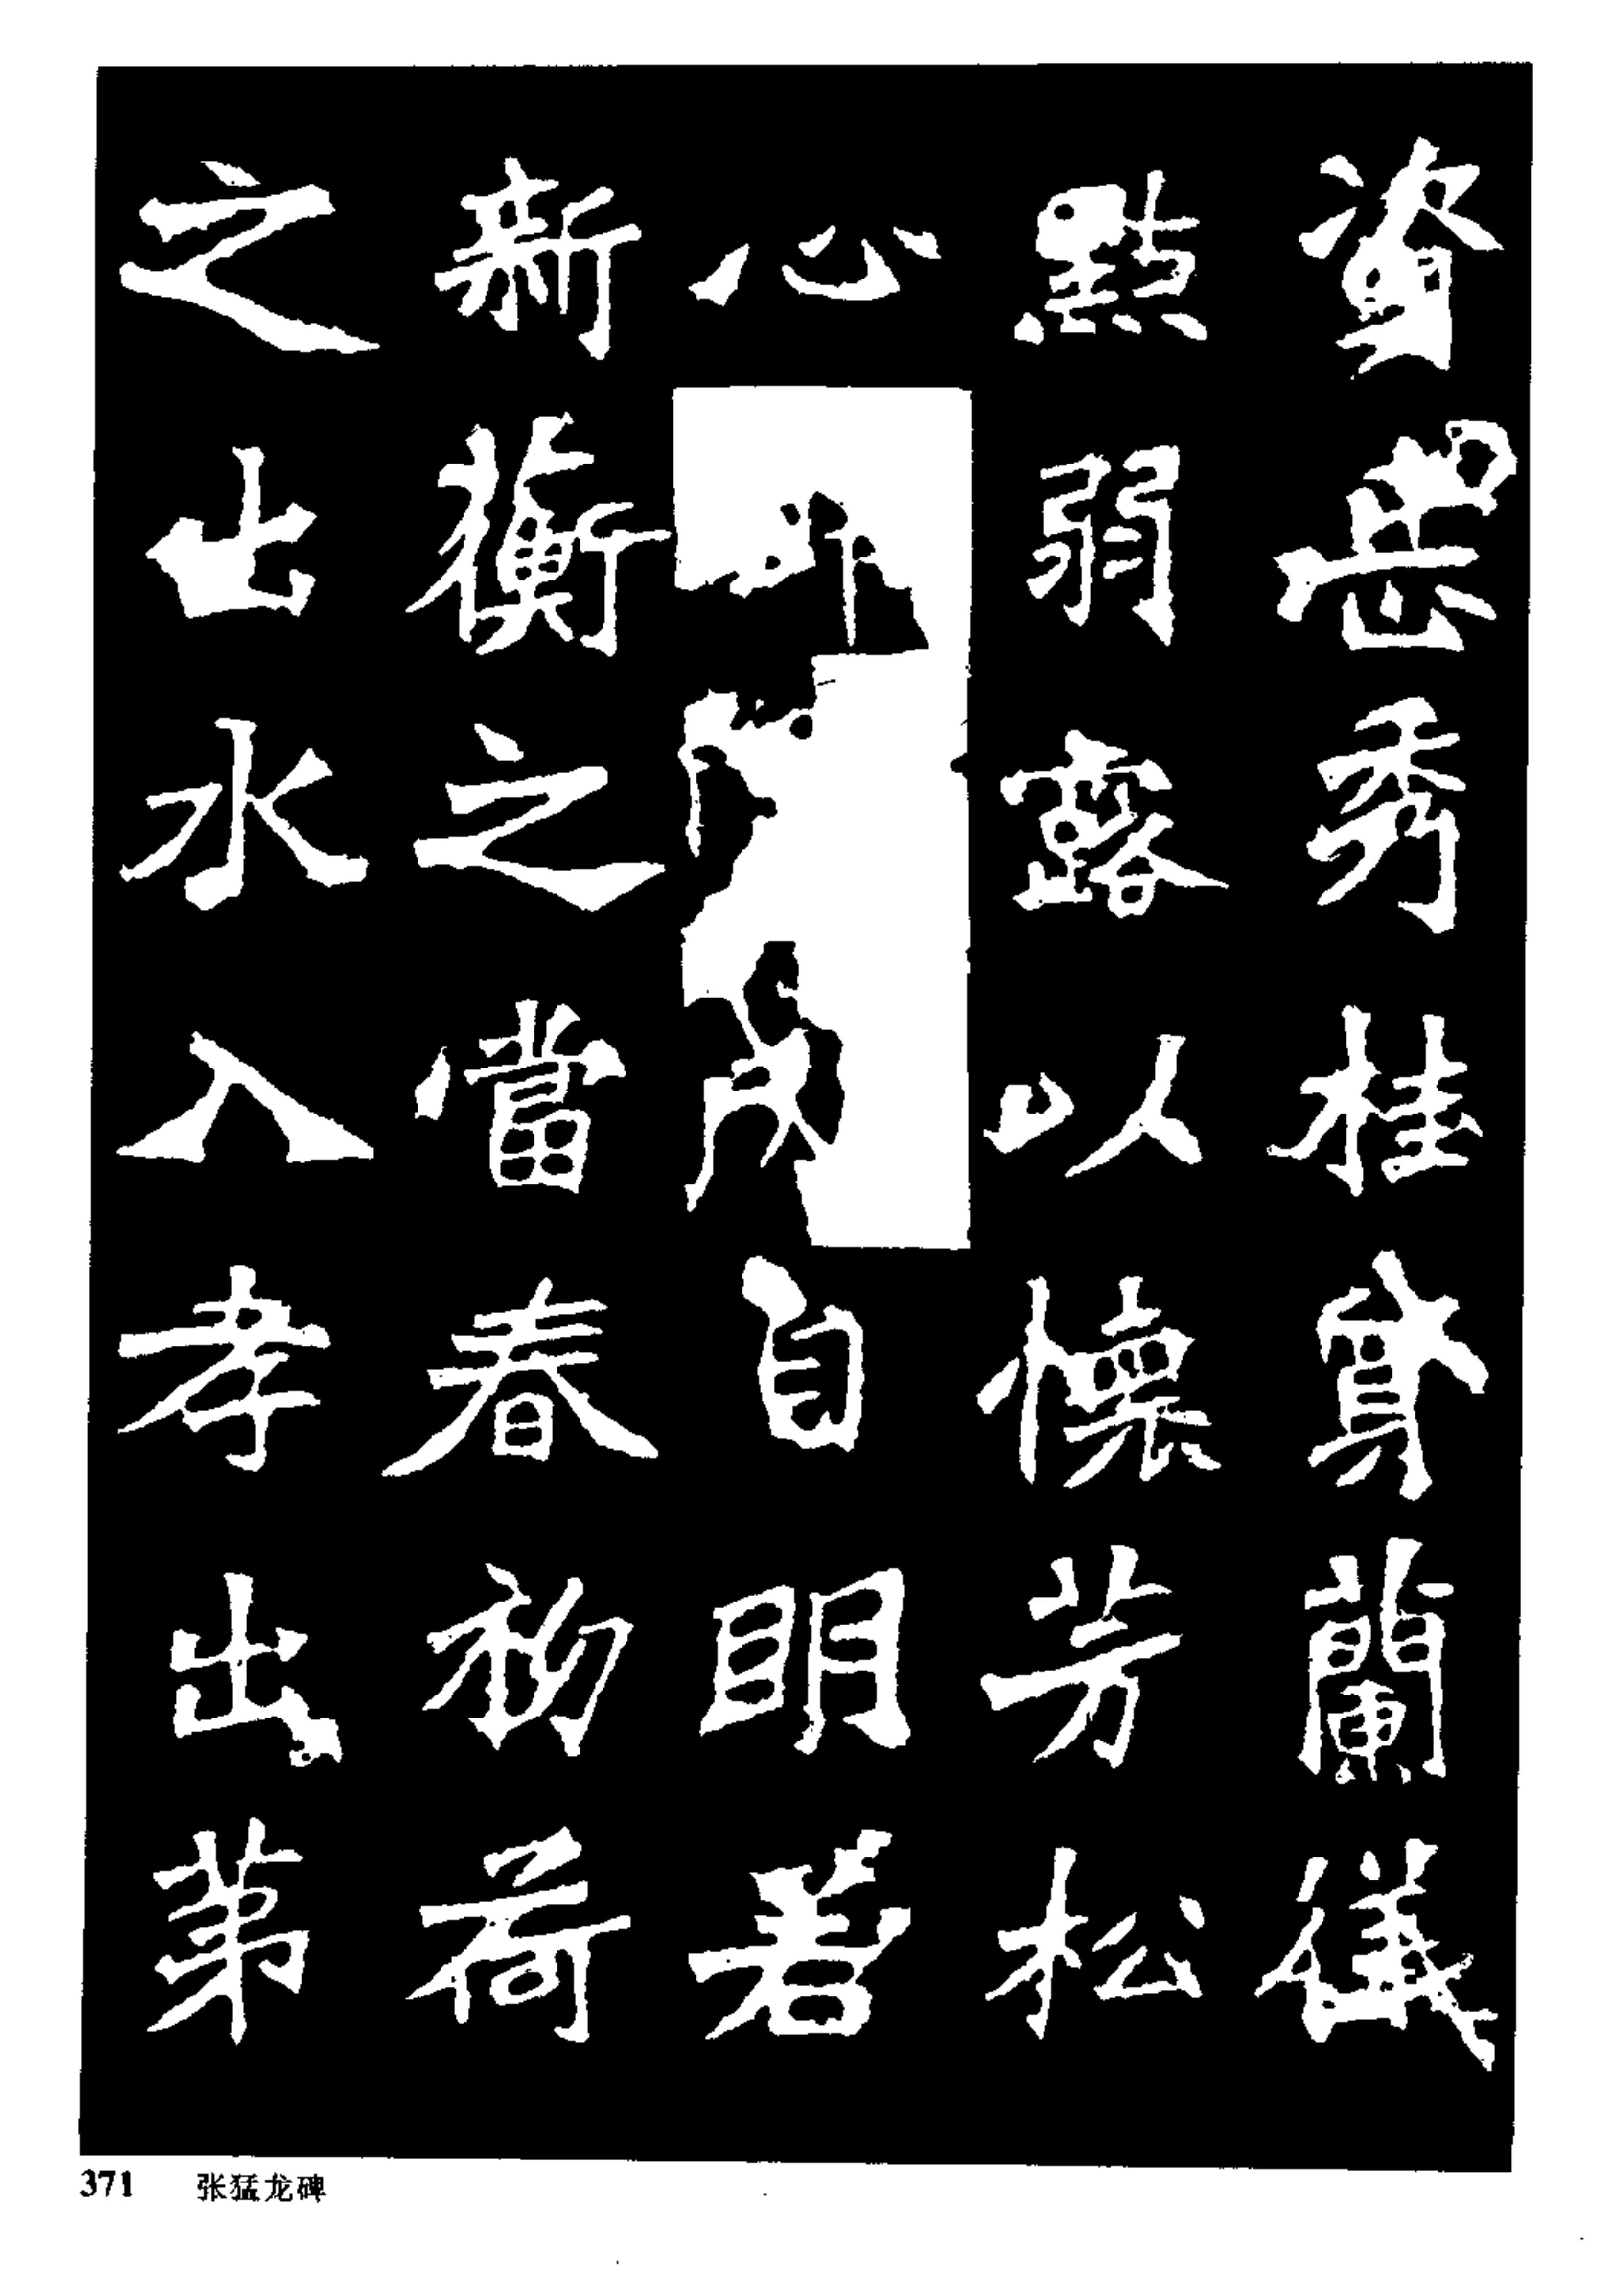 資岳秀桂質蘭儀
點弱露以懷芳松
心自明若
新蘅之當春初荷
之出水入孝出苐
371 张猛龙碑